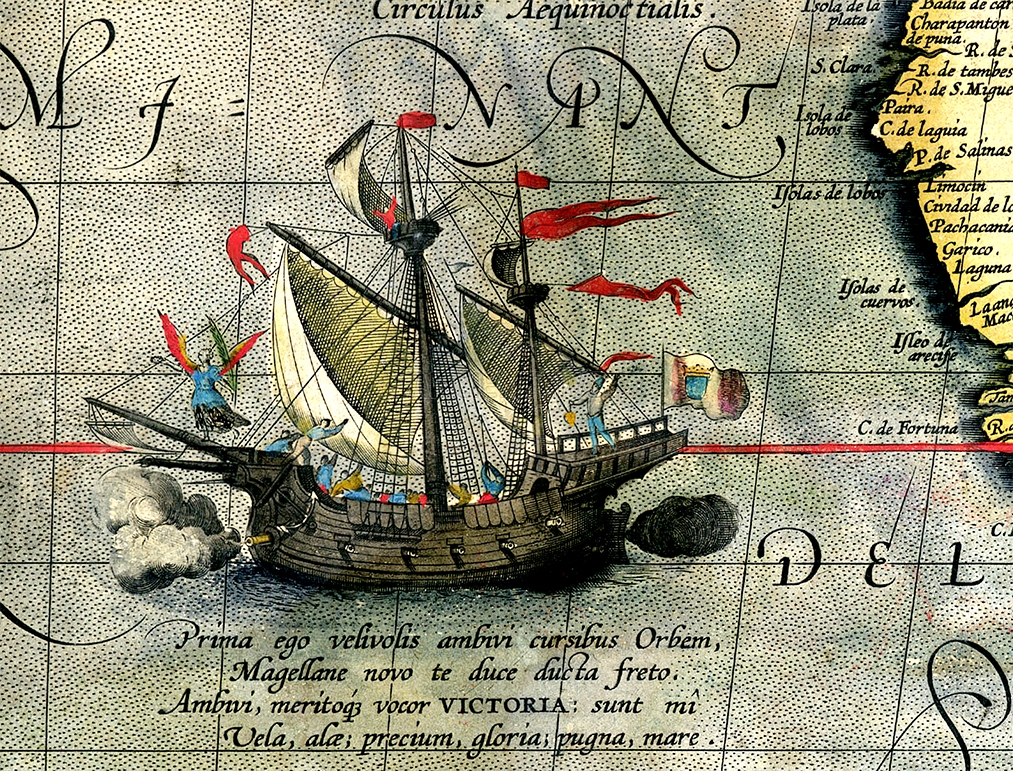 Circulus Aequinoctialis.
MI=
NINT
Isola de la
plata.
S. Clara.
Isola de
lobos
Isolas de lobos
Isolas de
cuervos
Isleo de
arecife
C. de Fortuna
Badia de car
Charapanton
de puna.
R. de S
R. de tambes
R. de S. Migue
Paira.
C. de laguia
P. de Salinas
Limocin
Cividad de lo
Pachacania
Garico.
Laguna
DEL
Prima ego velivolis ambivi cursibus Orbem,
Magellane novo te duce ducta freto.
Ambivi, meritoqꝫ vocor VICTORIA: sunt mî
Vela, alæ; precium, gloria; pugna, mare.